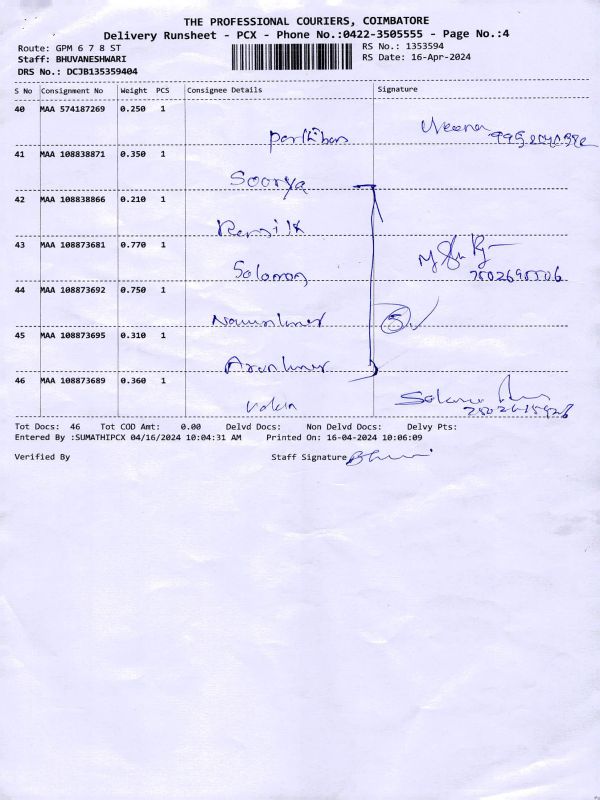 THE PROFESSIONAL COURIERS, COIMBATORE
Delivery Runsheet - PCX - Phone No.:0422-3505555 - Page No.:4
Route: GPM 6 7 8 ST
RS No.: 1353594
Staff: BHUVANESHWARI
RS Date: 16-Apr-2024
DRS No.: DCJB135359404
S No Consignment No Weight PCS Consignee Details Signature
40 MAA 574187269 0.250 1
Veena
41 MAA 108838871 0.350 1
Soorya
42 MAA 108838866 0.210 1
43 MAA 108873681 0.770 1
Solomon
7502695506
44 MAA 108873692 0.750 1
5
45 MAA 108873695 0.310 1
46 MAA 108873689 0.360 1
Tot Docs: 46 Tot COD Amt: 0.00 Delvd Docs: Non Delvd Docs: Delvy Pts:
Entered By :SUMATHIPCX 04/16/2024 10:04:31 AM Printed On: 16-04-2024 10:06:09
Verified By Staff Signature